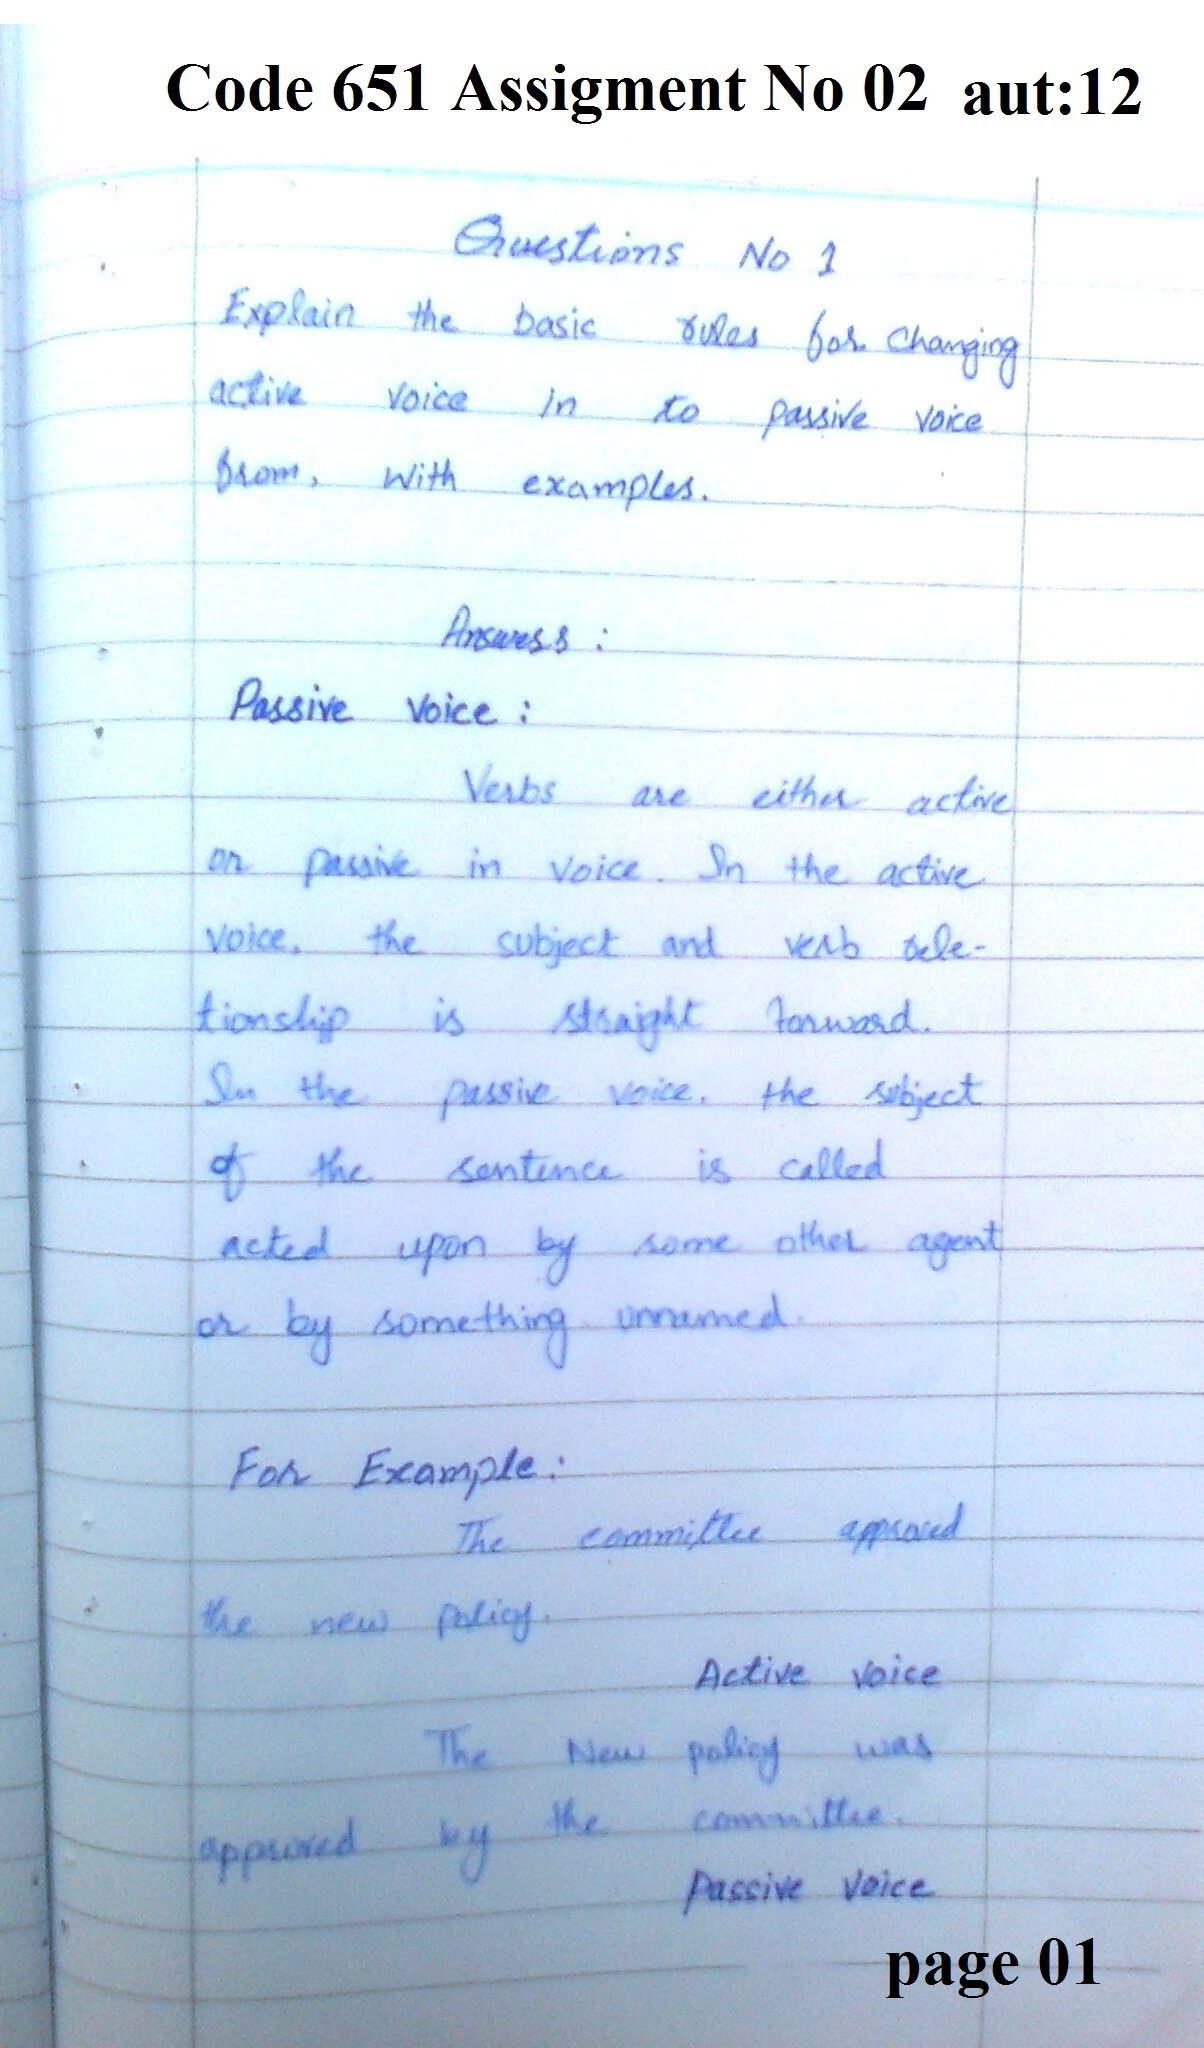 Code 651 Assigment No 02 aut:12
Questions No 1
Explain the basic rules for changing
active voice in to passive voice
from, with examples.
Answers :
Passive voice :
Verbs are either active
or passive in voice. In the active
voice, the subject and verb rele-
tionship is straight forward.
In the passive voice, the subject
of the sentence is called
acted upon by some other agent
or by something unnamed.
For Example:
The committee approved
the new policy.
Active voice
The New policy was
approved by the committee.
Passive voice
page 01